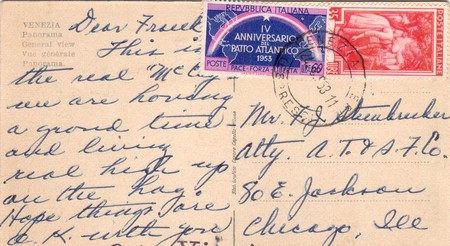 VENEZIA
Panorama
General view
Vue générale
Panorama.
Dear Frank
This is
the real "McCoy"
we are having
a grand time
and living
real high up
on the hog.
Hope things are
O.K. with you
REPVBBLICA ITALIANA
IV
ANNIVERSARIO
PATTO ATLANTICO
1953
POSTE
POSTE ITALIANE
Mr. F J Steinbrecker
atty. A.T. & S.F. Co.
80 E. Jackson
Chicago, Ill